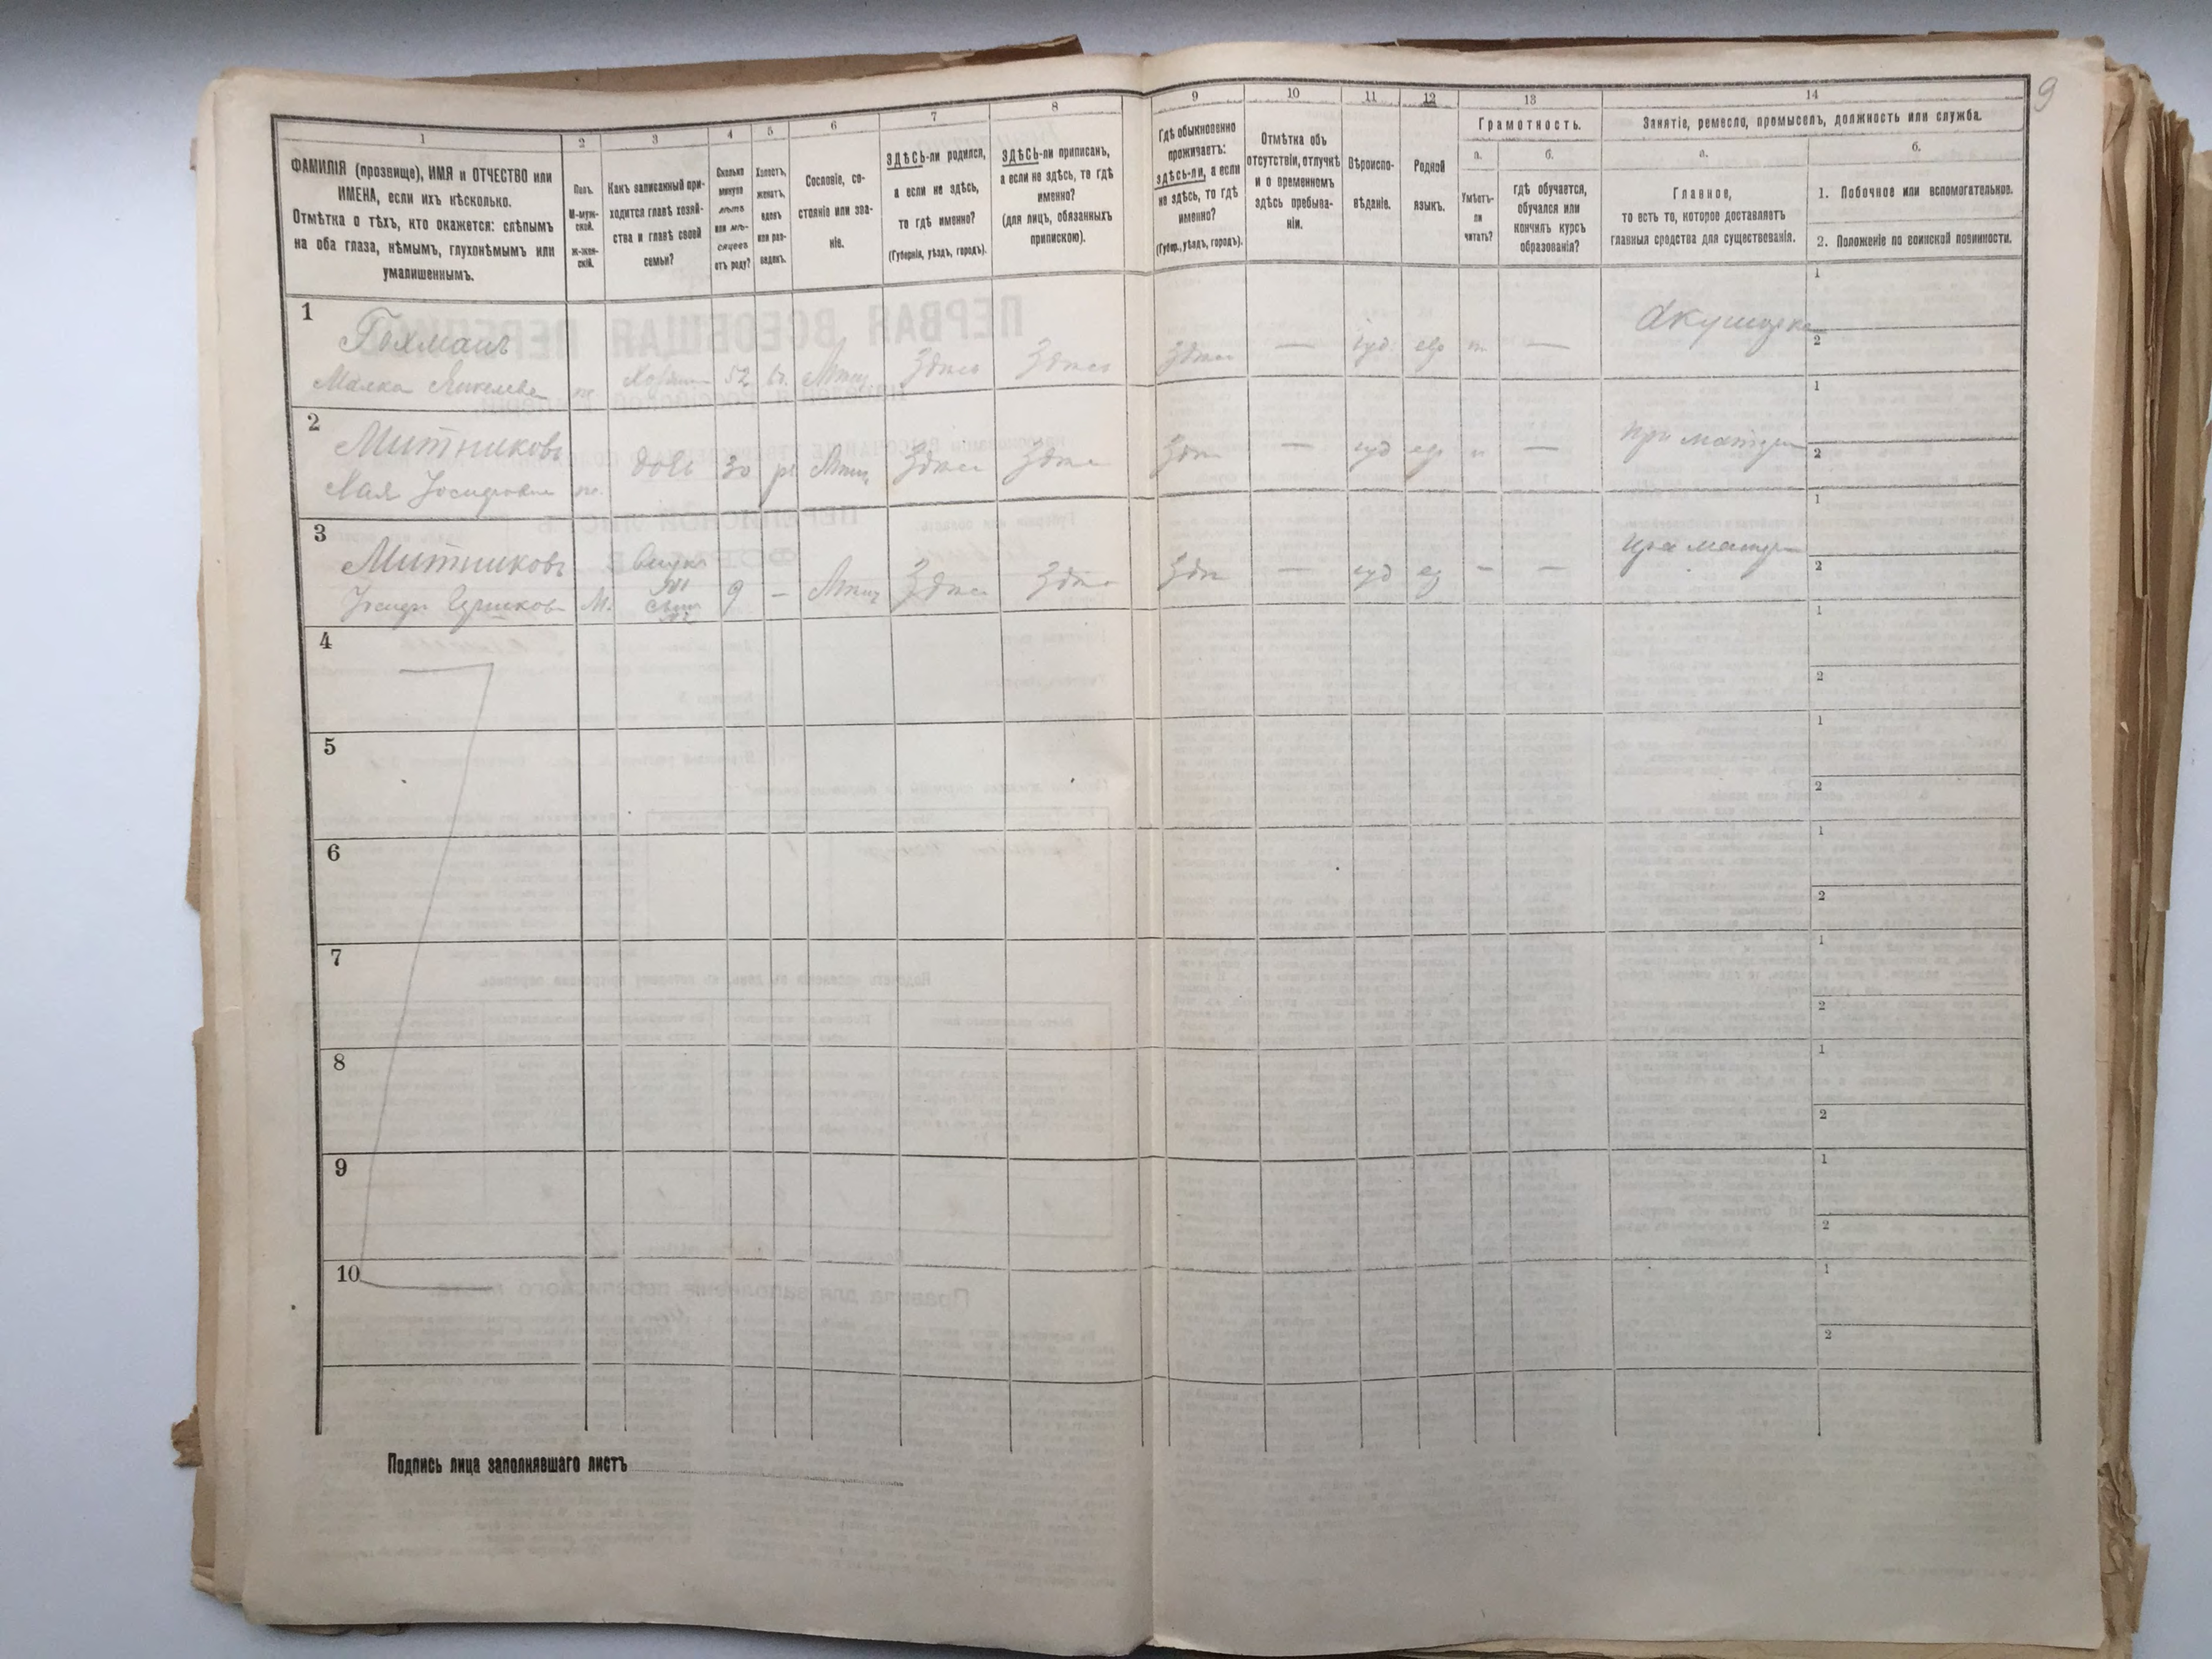 9
1
2
3
4
5
6
7
8
9
10
11
12
13
14
ФАМИЛІЯ (прозвище), ИМЯ и ОТЧЕСТВО или
ИМЕНА, если ихъ нѣсколько.
Отмѣтка о тѣхъ, кто окажется: слѣпымъ
на оба глаза, нѣмымъ, глухонѣмымъ или
умалишеннымъ.
Полъ.
М-муж-
ской.
Ж-жен-
скій.
Какъ записанный при-
ходится главѣ хозяй-
ства и главѣ своей
семьи?
Сколько
минуло
лѣтъ
или мѣ-
сяцевъ
отъ роду?
Холостъ,
женатъ,
вдовъ
или раз-
веденъ.
Сословіе, со-
стояніе или зва-
ніе.
ЗДѢСЬ-ли родился,
а если не здѣсь,
то гдѣ именно?
(Губернія, уѣздъ, городъ).
ЗДѢСЬ-ли приписанъ,
а если не здѣсь, то гдѣ
именно?
(для лицъ, обязанныхъ
припискою).
Гдѣ обыкновенно
проживаетъ:
здѣсь-ли, а если
не здѣсь, то гдѣ
именно?
(Губер., уѣздъ, городъ).
Отмѣтка объ
отсутствіи, отлучкѣ
и о временномъ
здѣсь пребыва-
ніи.
Вѣроиспо-
вѣданіе.
Родной
языкъ.
Грамотность.
а.
Умѣетъ-
ли
читать?
б.
гдѣ обучается,
обучался или
кончилъ курсъ
образованія?
Занятіе, ремесло, промыселъ, должность или служба.
а.
Главное,
то есть то, которое доставляетъ
главныя средства для существованія.
б.
1. Побочное или вспомогательное.
2. Положеніе по воинской повинности.
1
Гохманъ
Малка ж 52 вд. Мѣщ Здѣсь Здѣсь Здѣсь — іуд. евр — Акушерка
1
2
2
Митниковъ
Хая ж. дочь 30 Мѣщ Здѣсь Здѣсь Здѣсь — іуд евр — при матери
1
2
3
Митниковъ
М. внукъ №1 сынъ №2 9 — Мѣщ Здѣсь Здѣсь — іуд — — при матери
1
2
4
1
2
5
1
2
6
1
2
7
1
2
8
1
2
9
1
2
10
1
2
Подпись лица заполнявшаго листъ